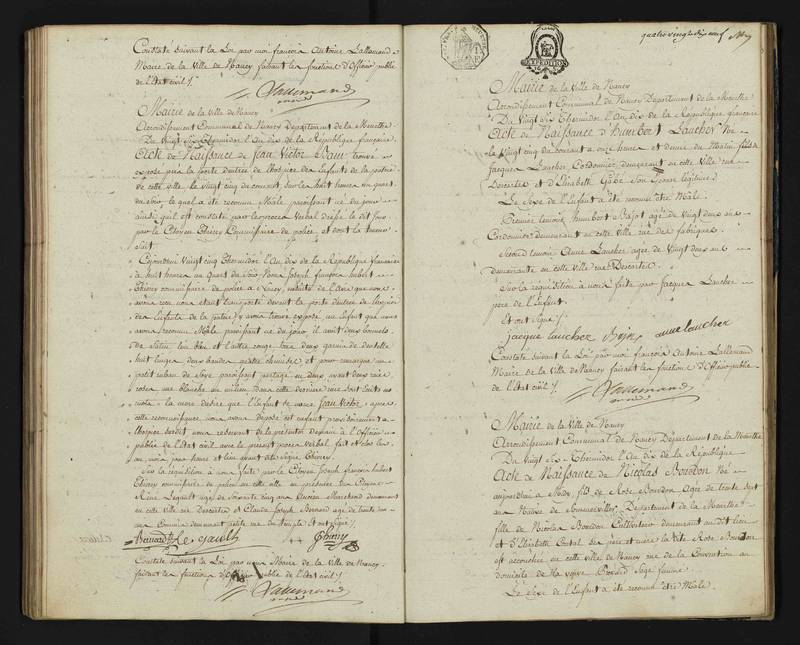 Constaté suivant la Loi par moi françois Antoine Lallemand
Maire de la Ville de Nancy faisant les fonctions d'Officier public
de l'Etat civil /.
Lallemand
Mairie de la Ville de Nancy
Arrondissement Communal de Nancy Département de la Meurthe
Du Vingt Six Thermidor l'An dix de la République française
Acte de Naissance de Jean Victor trouvé
exposé par la porte d'entrée de l'hospice des Enfants de la patrie
de cette ville, le vingt cinq du courant, sur les huit heures un quart
du soir, lequel a été reconnu Mâle paroissant né du jour
ainsi qu'il est constaté par le procès Verbal dressé le dit jour
par le Citoyen Thiéry Commissaire de police, et dont la teneur
suit
Cejourd'hui Vingt cinq Thermidor l'An dix de la République française
à huit heures un quart du Soir, Nous Joseph françois hubert
Thiéry commissaire de police à Nancy, de l'avis que nous
avons eu, nous étant transporté devant la porte d'entrée de l'hospice
des Enfants de la patrie, y avons trouvé exposé un Enfant que nous
avons reconnu Mâle paroissant né du jour, il avoit deux bonnets
de Satin, un bleu et l'autre rouge tous deux garnis de dentelle
huit linges deux bandes, quatre chemises et pour remarque un
petit ruban de soye paroissant partagé en deux ayant deux raies
roses, une blanche au milieu Dans cette dernière raie sont écrits ces
mots: la mère désire que l'Enfant se nomme Jean Victor, après
cette reconnoissance nous avons déposé cet enfant provisoirement à
l'hospice susdit nous réservant de le présenter Demain à l'Officier
public de l'Etat civil avec le présent procès Verbal fait et clos les
an, mois, jour, heure et lieu avant dits. Signé Thiéry.
Sur la réquisition à nous faite par le Citoyen Joseph françois hubert
Thiéry commissaire de police en cette ville en présence des Citoyens
Réné Legault agé de Soixante cinq ans Ancien Marchand demeurant
en cette ville rue Descartes et Claude Joseph Bernard agé de trente
ans Commis demeurant petite rue du Temple Et ont signé /.
Bernard Le gault Thiéry
Constaté suivant la Loi par nous Maire de la Ville de Nancy
faisant les fonctions d'Officier public de l'Etat civil /.
Lallemand
quatre vingt dix neuf
EXPEDITION
Mairie de la Ville de Nancy
Arrondissement Communal de Nancy Département de la Meurthe
Du Vingt Six Thermidor l'An dix de la République française
Acte de Naissance d'humbert Laucher Né
le Vingt cinq du courant à onze heures et demie du Matin, fils de
Jacques Laucher Cordonnier demeurant en cette Ville rue
Descartes et d'Elisabeth Gabé Son Epouse légitime
Le Sexe de l'Enfant a été reconnu être Mâle.
Premier temoin, humbert Bajot agé de Vingt deux ans
Cordonnier demeurant en cette ville rue de fabriques.
Second temoin Anne Laucher agée de Vingt deux ans
demeurante en cette ville rue Descartes.
Sur la réquisition à nous faite par Jacques Laucher
père de l'Enfant
Et ont signé /.
jacque laucher Bajot anne laucher
Constaté suivant la Loi par moi françois Antoine Lallemand
Maire de la Ville de Nancy faisant les fonctions d'Officier public
de l'Etat civil /.
Lallemand
Mairie de la Ville de Nancy
Arrondissement Communal de Nancy Département de la Meurthe
Du Vingt Six Thermidor l'An dix de la République
Acte de Naissance de Nicolas Bourdon Né
aujourd'hui à Midi, fils de Rose Bourdon agée de trente sept
ans Native de Sommerviller Département de la Meurthe
fille de Nicolas Bourdon Cultivateur demeurant au dit lieu
et d'Elisabeth Ses père et mère la dite Rose Bourdon
est accouchée en cette ville de Nancy rue de la Convention au
domicile de la veuve Sage femme.
Le Sexe de l'Enfant a été reconnu être Mâle.